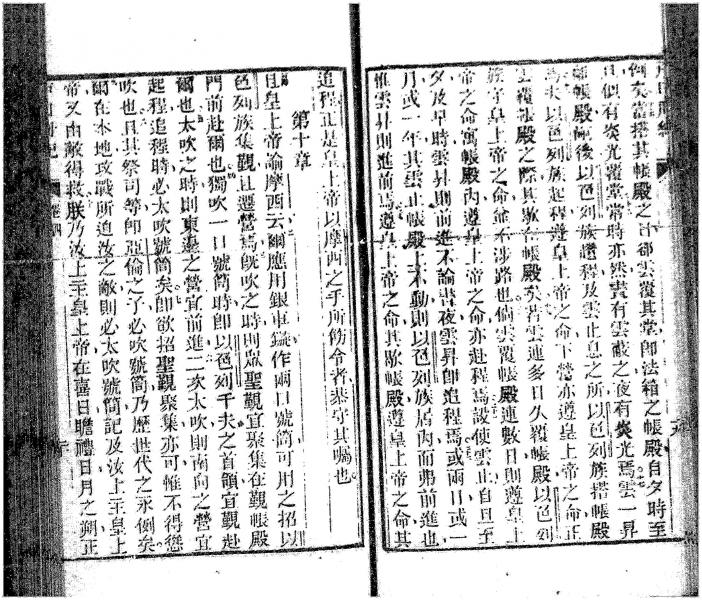 例矣當搭其帳殿之日卽雲覆其堂卽法箱之帳殿自夕時至
旦似有炎光覆堂常時亦然晝有雲蔽之夜有炎光焉雲一昇
離帳殿而後以色列族遵程及雲止息之所以色列族搭帳殿
焉夫以色列族起程遵皇上帝之命下營亦遵皇上帝之命正
雲覆帳殿之際其歇在帳殿矣若雲連多日久覆帳殿以色列
族守皇上帝之命並不涉路也倘雲覆帳殿連數日則遵皇上
帝之命寓帳殿內遵皇上帝之命亦赴程焉設使雲止自旦至
夕及早時雲昇則前進不論晝夜雲昇卽追程焉或兩日或一
月或一年其雲止帳殿上不動則以色列族居內而弗前進也
惟雲昇則進前焉遵皇上帝之命其歇帳殿遵皇上帝之命其
追程正是皇上帝以摩西之手所飭令者恭守其囑也
第十章
且皇上帝諭摩西云爾應用銀車鏇作兩口號筒可用之招以
色列族集觀且遷營焉旣吹之時則眾聖觀宜聚集在觀帳殿
門前赴爾也獨吹一口號筒時卽以色列千夫之首領宜觀赴
爾也太吹之時則東邊之營宜前進二次太吹則南向之營宜
起程追程時必太吹號筒矣卽欲招聖觀聚集亦可惟不得憑
吹也且其祭司等卽亞倫之子必吹號筒乃歷世代之永例矣
爾在本地攻戰所迫汝之敵則必太吹號筒記及汝上主皇上
帝又由敵得救朕乃汝上主皇上帝在喜日瞻禮日月之朔正
卷四